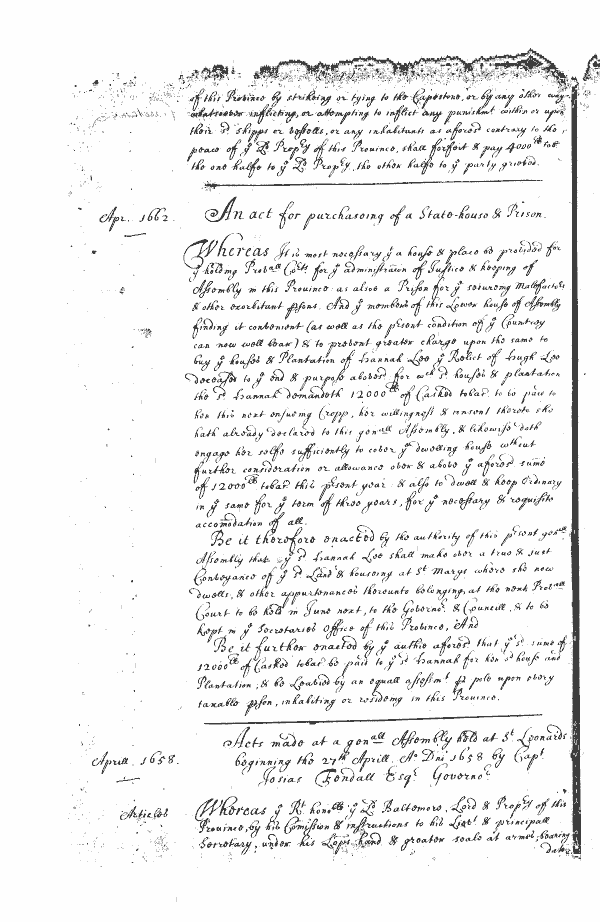 of this Province by strikeing or tying to the Capestone, or by any other way
whatsoever inflicting, or attempting to inflict any punishmt within or upon
their sd shipps or vessells, or any inhabitants as aforesd contrary to the
peace of ye Ld Propry of this Province, shall forfeit & pay 4000lb tob
the one halfe to ye Ld Propry, the other halfe to ye party grieved.
Apr. 1662. An act for purchaseing of a State-house & Prison.
Whereas It is most necessary yt a house & place be provided for
ye holding Provall Cots for ye administracon of Justice & keeping of
Assembly in this Province as alsoe a Prison for ye secureing Malefactors
& other exorbitant psons. And ye members of this Lower house of Assembly
finding it convenient (as well as the psent condition of ye Countrey
can now well beare) & to prevent greater charge upon the same to
buy ye houses & Plantation of Hannah Lee ye Relict of Hugh Lee
deceased to ye end & purpose abovesd for wch sd houses & plantation
the sd Hannah demandeth 12000lb of Casked tobac. to be paid to
her this next ensueing Cropp, her willingness & consent thereto she
hath already declared to this genall Assembly, & likewise doth
engage her selfe sufficiently to cover ye dwelling house wthout
further consideration or allowance over & above ye aforesd sume
of 12000lb tobac this psent yeare & also to dwell & keep Ordinary
in ye same for ye term of three years, for ye necessary & requisite
accomodation of all.
Be it therefore enacted by the authority of this psent genall
Assembly that ye sd Hannah Lee shall make over a true & just
Conveyance of ye sd Land & houseing at St Marys where she now
dwells, & other appurtenances thereunto belonging, at the next Provall
Court to be held in June next, to the Governr. & Councill, & to be
kept in ye Secretaries Office of this Province, And
Be it further enacted by ye authie aforesd that ye sd sume of
12000lb of Casked tobac be paid to ye sd Hannah for her sd house and
Plantation, & be Leavied by an equall assessmt p pole upon every
taxable pson, inhabiting or resideing in this Province.
Acts made at a genall Assembly held at St Leonards
Aprill. 1658. beginning the 27th Aprill Ao Dni 1658 by Capt
Josias Fendall Esqr Governor
Articles Whereas ye Rt honoble ye Ld Baltemore, Lord & Propry of this
Province, by his Comission & instructions to his Lieut & principall
Secretary, under his Lopps hand & greater seale at armes, bearing
date